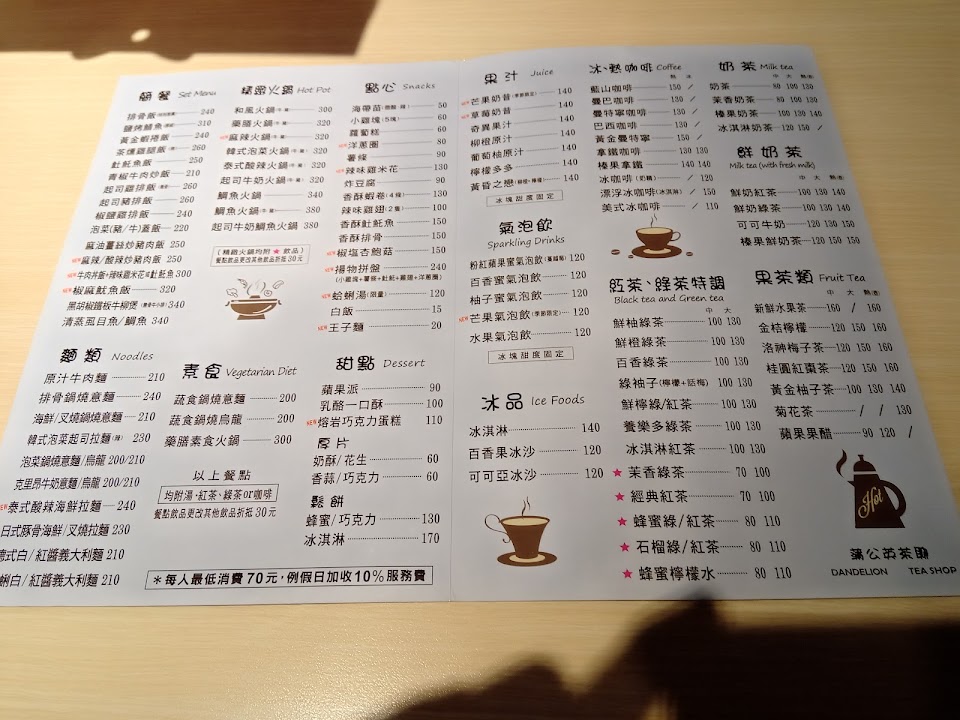 簡餐 Set Menu
排骨飯 240
鹽烤鯖魚 310
黃金蝦捲飯 240
茶燻雞腿飯 260
魠魠魚飯 250
青椒牛肉炒飯 210
起司雞排飯 260
起司豬排飯 260
椒鹽雞排飯 240
泡菜(豬/牛)蓋飯 220
麻油薑絲炒豬肉飯 250
NEW 麻辣/酸辣炒豬肉飯 250
NEW 牛肉丼飯+辣味霸米花或魠魚 300
NEW 椒麻魷魚飯 320
黑胡椒鐵板牛柳煲 340
清蒸虱目魚/鯛魚 340
精緻火鍋 Hot Pot
和風火鍋 300
藥膳火鍋 320
NEW 麻辣火鍋 320
韓式泡菜火鍋 320
泰式酸辣火鍋 320
起司牛奶火鍋 320
鯛魚火鍋 340
鯛魚火鍋 380
起司牛奶鯛魚火鍋 380
(精緻火鍋均附 ★ 飲品)
餐點飲品更改其他飲品折抵30元
點心 Snacks
海帶苗 50
小雞塊(5塊) 60
蘿蔔糕 60
NEW 洋蔥圈 80
薯條 90
NEW 辣味雞米花 130
炸豆腐 90
香酥蝦卷(4種) 130
辣味雞翅(2隻) 100
香酥魠魚 150
香酥排骨 150
NEW 椒塩杏鮑菇 150
NEW 揚物拼盤 240
(小雞塊+薯條+魠魚+雞翅+洋蔥圈)
NEW 蛤蜊湯(限量) 120
白飯 15
NEW 王子麵 20
麵類 Noodles
原汁牛肉麵 210
排骨鍋燒意麵 240
海鮮/叉燒鍋燒意麵 210
韓式泡菜起司拉麵(辣) 230
泡菜鍋燒意麵/烏龍 200/210
克里昂牛奶意麵/烏龍 200/210
NEW 泰式酸辣海鮮拉麵 240
日式豚骨海鮮/叉燒拉麵 230
式白/紅醬義大利麵 210
白/紅醬義大利麵 210
素食 Vegetarian Diet
蔬食鍋燒意麵 200
蔬食鍋燒烏龍 200
藥膳素食火鍋 300
以上餐點
均附湯、紅茶、綠茶or咖啡
餐點飲品更改其他飲品折抵30元
甜點 Dessert
蘋果派 90
乳酪一口酥 100
NEW 熔岩巧克力蛋糕 110
厚片
奶酥/花生 60
香蒜/巧克力 60
鬆餅
蜂蜜/巧克力 130
冰淇淋 170
＊每人最低消費70元,例假日加收10%服務費
果汁 Juice
NEW 芒果奶昔(季節限定) 140
NEW 草莓奶昔 140
奇異果汁 140
柳橙原汁 140
葡萄柚原汁 140
檸檬多多 140
黃昏之戀(柳橙+檸檬) 140
冰塊甜度固定
氣泡飲
Sparkling Drinks
粉紅蘋果蜜氣泡飲(蔓越莓) 120
百香蜜氣泡飲 120
柚子蜜氣泡飲 120
NEW 芒果氣泡飲(季節限定) 120
水果氣泡飲 120
冰塊甜度固定
冰品 Ice Foods
冰淇淋 140
百香果冰沙 120
可可亞冰沙 120
冰、熱咖啡 Coffee
熱 冰
藍山咖啡 150 /
曼巴咖啡 130 /
曼特寧咖啡 130 /
巴西咖啡 130 /
黃金曼特寧 150 /
拿鐵咖啡 130 130
榛果拿鐵 140 140
冰咖啡(奶精) / 120
漂浮冰咖啡(冰淇淋) / 150
美式冰咖啡 / 110
紅茶、綠茶特調
Black tea and Green tea
中 大
鮮柚綠茶 100 130
鮮橙綠茶 100 130
百香綠茶 100 130
綠柚子(檸檬+話梅) 100 130
鮮檸綠/紅茶 100 130
養樂多綠茶 100 130
冰淇淋紅茶 100 130
★ 茉香綠茶 70 100
★ 經典紅茶 70 100
★ 蜂蜜綠/紅茶 80 110
★ 石榴綠/紅茶 80 110
★ 蜂蜜檸檬水 80 110
奶茶 Milk tea
中 大 熱(壺)
奶茶 80 100 130
茉香奶茶 80 100 130
榛果奶茶 100 130 140
冰淇淋奶茶 120 150 /
鮮奶茶
Milk tea (with fresh milk)
中 大 熱(壺)
鮮奶紅茶 100 130 140
鮮奶綠茶 100 130 140
可可牛奶 120 130 140
榛果鮮奶茶 120 150 150
果茶類 Fruit Tea
中 大 熱(壺)
新鮮水果茶 160 / 160
金桔檸檬 120 150 160
洛神梅子茶 120 150 160
桂圓紅棗茶 120 150 160
黃金柚子茶 100 130 130
菊花茶 / / 130
蘋果果醋 90 120 /
Hot
蒲公英茶購
DANDELION TEA SHOP